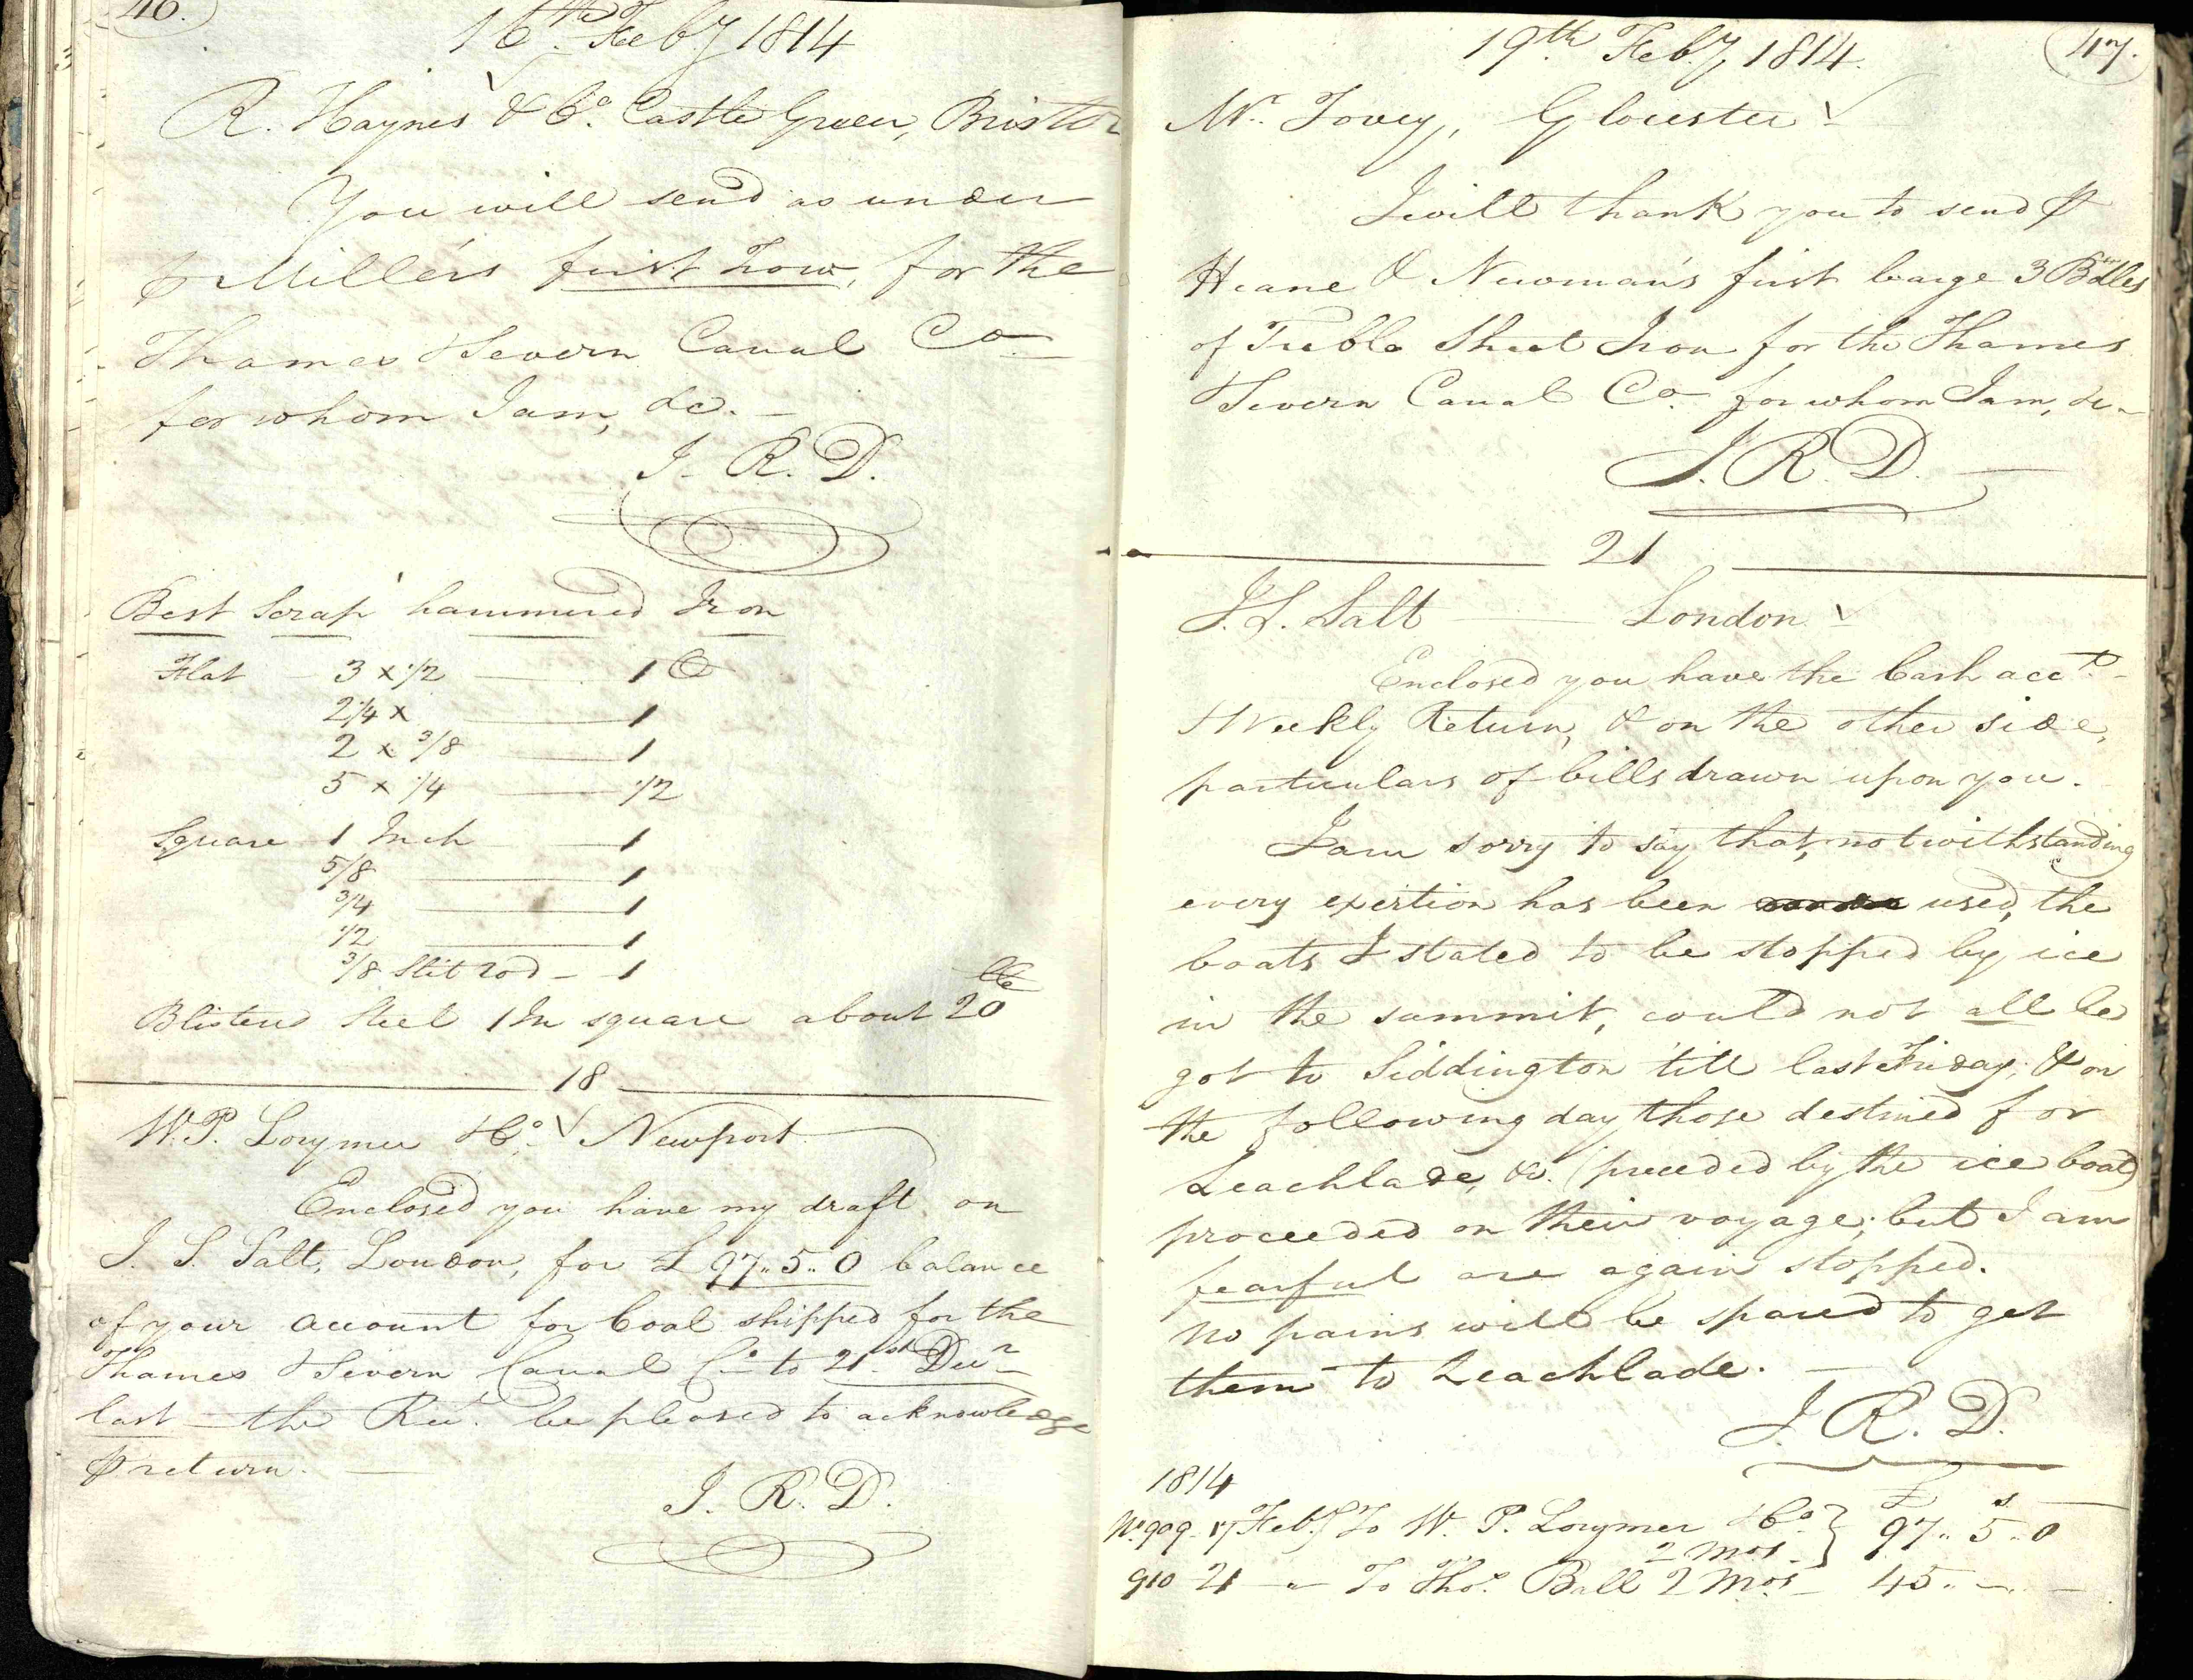 46.
16th Feby 1814
R. Haynes & Co. Castle Green, Bristol
You will send as under
⅌ Miller's first Trow, for the
Thames & Severn Canal Co
for whom I am, &c. –
J. R. D.
Best Scrap hammered Iron
Flat 3 x 1/2 — 1 C
2 1/4 x — 1
2 x 3/8 — 1
5 x 1/4 — 1/2
Square 1 Inch — 1
5/8 — 1
3/4 — 1
1/2 — 1
3/8 Slit rod – 1
Blistered Steel 1 In square about 20 lb
18
W. P. Lorymer & Co. Newport
Enclosed you have my draft on
J. S. Salt, London, for £97..5..0 balance
of your account for Coal shipped for the
Thames & Severn Canal Co to 21st Decr
last – the Rect. be pleased to acknowledge
⅌ return. —
J. R. D.
47.
19th Feby 1814.
Mr. Tovey, Gloucester
I will thank you to send ⅌
Heane & Newman's first barge 3 Bdles
of Treble Sheet Iron for the Thames
& Severn Canal Co. for whom I am, &c –
J. R. D. —
21
J. S. Salt — London
Enclosed you have the Cash acct.
& Weekly Return, & on the other side,
particulars of bills drawn upon you.
I am sorry to say that, notwithstanding
every exertion has been used, the
boats I stated to be stopped by ice
in the summit, could not all be
got to Siddington till last Friday; & on
the following day those destined for
Leachlade, &c. (preceded by the ice boat)
proceeded on their voyage; but I am
fearful are again stopped.
No pains will be spared to get
them to Leachlade. —
J. R. D.
1814 £ s
No. 909 17 Feby To W. P. Lorymer & Co. } 97.. 5.. 0
2 Mos.
910 21 – " – To Thos. Ball 2 Mos – 45.. –.. –